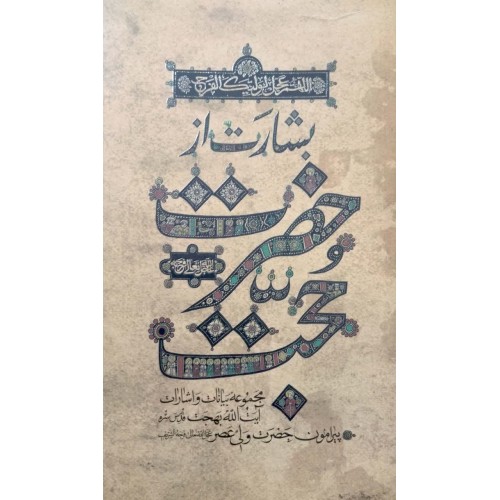 اللهم عجل لولیک الفرج
بشارت از
حضرت
عجل الله تعالی فرجه
حجت
مجموعه بیانات و اشارات
آیت الله بهجت قدس سره
پیرامون حضرت ولی عصر عجل الله تعالی فرجه الشریف